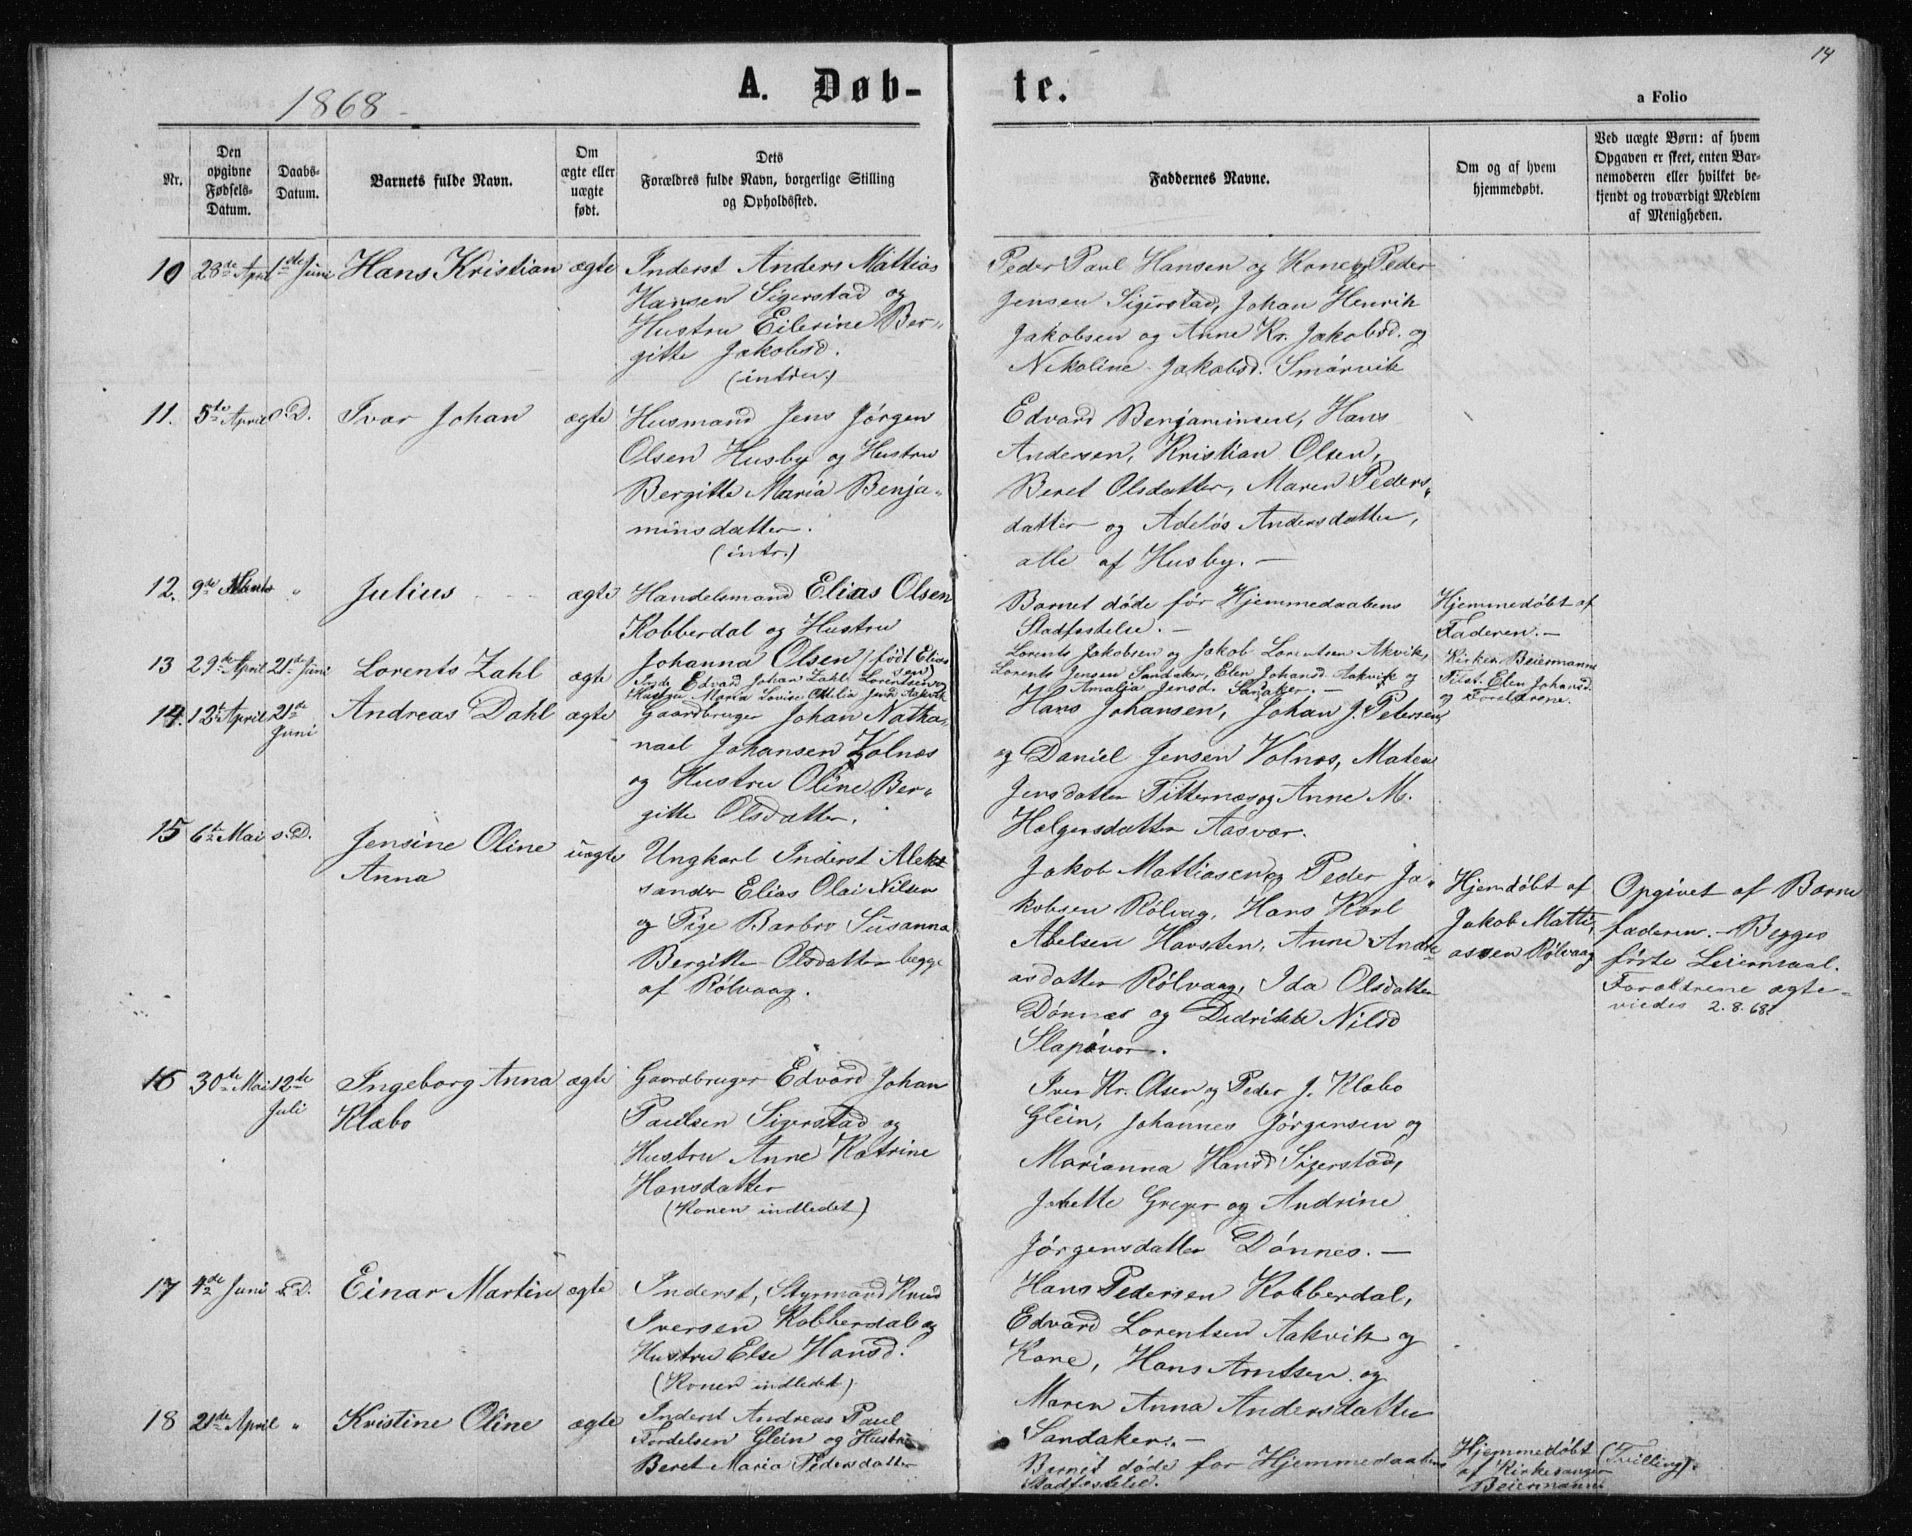 14
1868
A. Døb-
te.
a Folio
Nr.
Den opgivne Fødsels-Datum.
Daabs-Datum.
Barnets fulde Navn.
Om ægte eller uægte født.
Dets
Forældres fulde Navn, borgerlige Stilling
og Opholdssted.
Faddernes Navne.
Om og af hvem
hjemmedøbt.
Ved uægte Børn: af hvem
Opgaven er skeet, enten Bar-
nemoderen eller hvilket be-
kjendt og troværdigt Medlem
af Menigheden.
10 28de April 1ste Juni Hans Kristian ægte Inderst Anders Mattias
Hansen Sigerstad og
Hustru Eilerine Ber-
gitte Jakobsd.
(introu.)
Peder Paul Hansen og Kone og Peder
Jensen Sigerstad, Johan Henrik
Jakobsen og Anne Kr. Jakobsd. og
Nikoline Jakobsd. Smørvik
11. 5te April s. D. Ivar Johan ægte Husmand Jens Jørgen
Olsen Husby og Hustru
Bergitte Maria Benja-
minsdatter.
(intr.)
Edvard Benjaminsen, Hans
Andersen, Kristian Olsen,
Beret Olsdatter, Maren Peders-
datter og Adeløs Andersdatter,
alle af Husby. —
12. 9de Marts " Julius ægte Handelsmand Elias Olsen
Kobberdal og Hustru
Johanna Olsen (født Elias
sen)
Barnet døde før Hjemmedaabens
Stadfæstelse. —
Hjemmedøbt af
Faderen. —
13 29de April 21de Juni Lorents Zahl ægte
Inds. Edvard Johan Zahl Lorentsen og
Hustru Maria Lovise Otilia Jensd. Aakvik
Lorents Jakobsen og Jakob Lorentsen Akvik,
Lorents Jensen Sandaker, Elen Johansd. Aakvik og
Amalia Jensd. Sandaker. —
Kirkes. Beiermanns
Tilst. Elen Johansd.
og Forældrene.
14. 12te April 21de Juni Andreas Dahl ægte Gaardbruger Johan Natha-
nael Johansen Volnes
og Hustru Oline Ber-
gitte Olsdatter.
Hans Johansen, Johan J. Petersen,
og Daniel Jensen Volnes, Maten
Jensdatter Titternæs og Anne M.
Holgersdatter Aasvær.
15 6te Mai s. D. Jensine Oline
Anna
uægte Ungkarl Inderst Alek-
sander Elias Olai Nilsen
og Pige Barbro Susanna
Bergitte Olsdatter begge
af Rølvaag.
Jakob Mattiasen og Peder Ja-
kobsen Rølvag, Hans Karl
Abelsen Havsten, Anne Andre
asdatter Rølvaag, Ida Olsdatter
Dønnes og Didrikke Nilsd
Slapøvær.
Hjemdøbt af
Jakob Matti-
assen Rølvaag
Opgivet af Barne
faderen. Begges
første Leiermaal.
Forældrene ægte-
viedes 2.8.68.
16 30te Mai 12te Juli Ingeborg Anna
Klæbo
ægte Gaardbruger Edvard Johan
Paulsen Sigerstad og
Hustru Anne Katrine
Hansdatter
(Konen indledet)
Iver Kr. Olsen og Peder J. Klæbo
Glein, Johannes Jørgensen og
Marianna Hansd. Sigerstad,
Johette Greger og Andrine
Jørgensdatter Dønnes. —
17 4de Juni s. D. Einar Martin ægte Inderst, Styrmand Knud
Iversen Kobberdal og
Hustru Else Hansd.
(Konen indledet)
Hans Pedersen Kobberdal,
Edvard Lorentsen Aakvik og
Kone, Hans Arntsen og
Maren Anna Andersdatter
Sandaker. —
18 21de April " Kristine Oline ægte Inderst Andreas Paul
Fordelsen Glein og Hustru
Beret Maria Pedersdatter
Barnet døde før Hjemmedaabens
Stadfæstelse.
Hjemmedøbt
af Kirkesanger
Beiermann
(Tvilling).